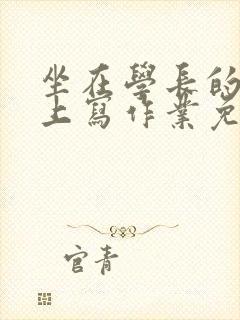 坐在學長的
上寫作業免
官青